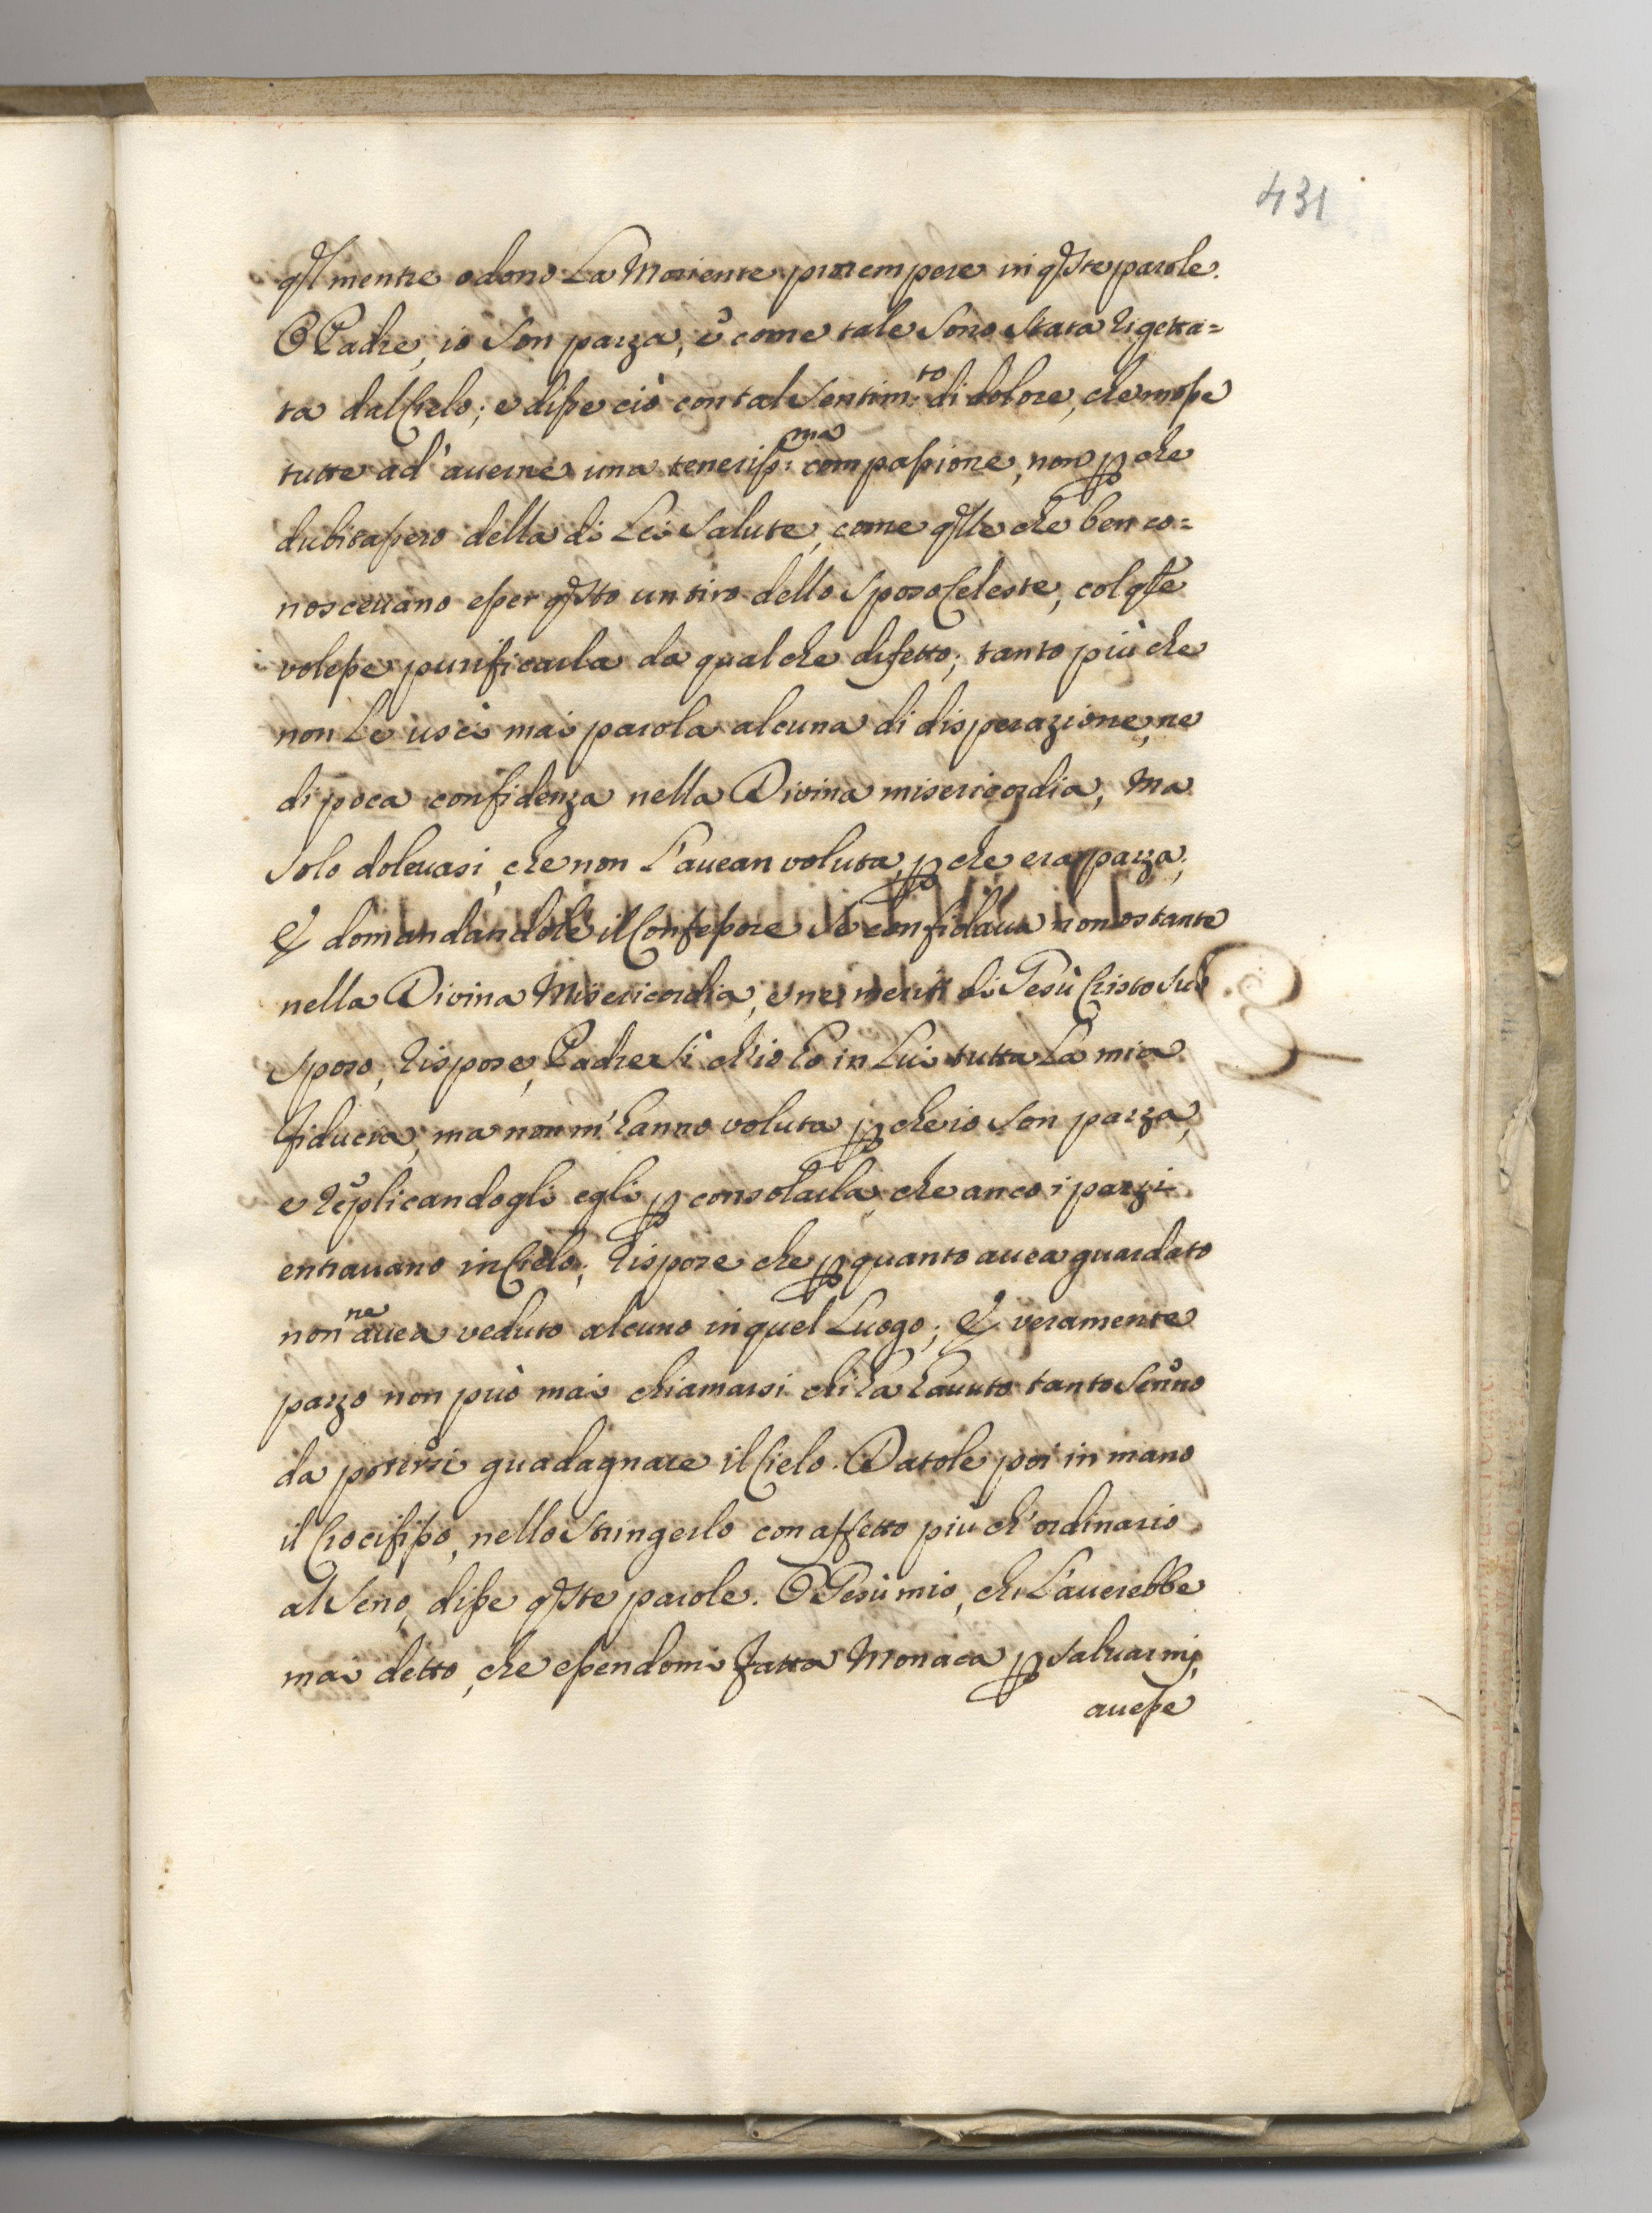 431
q̃l mentre odono La Moriente prorempere in q̃ste parole.
O Padre, io son pazza, e come tale sono stata rigetta=
ta dal Cielo; e disse ciò con tal sentim:to di dolore, che mosse
tutte ad' auerne una teneriss:ma compassione, non p che
dubitassero della di Lei salute, come q̃lle che ben co=
nosceuano esser q̃sto un tiro dello Sposo Celeste, col q̃le
volesse purificarla da qual che difetto; tanto più che
non Le uscì mai parola alcuna di disperazione, ne
di poca confidenza nella Divina misericordia, Ma
solo doleuasi, che non L'auean voluta, p che era pazza;
E domandandole il Confessore se confidaua nonostante
nella Divina Misericordia, e ne meriti di Gesù Cristo suo
sposo, rispose, Padre sì ch'io ho in Lui tutta La mia
fiducia, ma non m'hanno voluta p che io son pazza,
e replicandogli egli p consolarla, che anco i pazzi
entrauano in Cielo; rispose che p quanto auea guardato
non ne auea veduto alcuno in quel Luogo; E veramente
pazzo non può mai chiamarsi chi ha hauuto tanto senno
da potersi guadagnare il Cielo. Datole poi in mano
il Crocifisso, nello stringerlo con affetto più ch'ordinario
al seno, disse q̃ste parole. O Gesù mio, chi L'auerebbe
mai detto, che essendomi fatta Monaca p saluarmi,
auesse